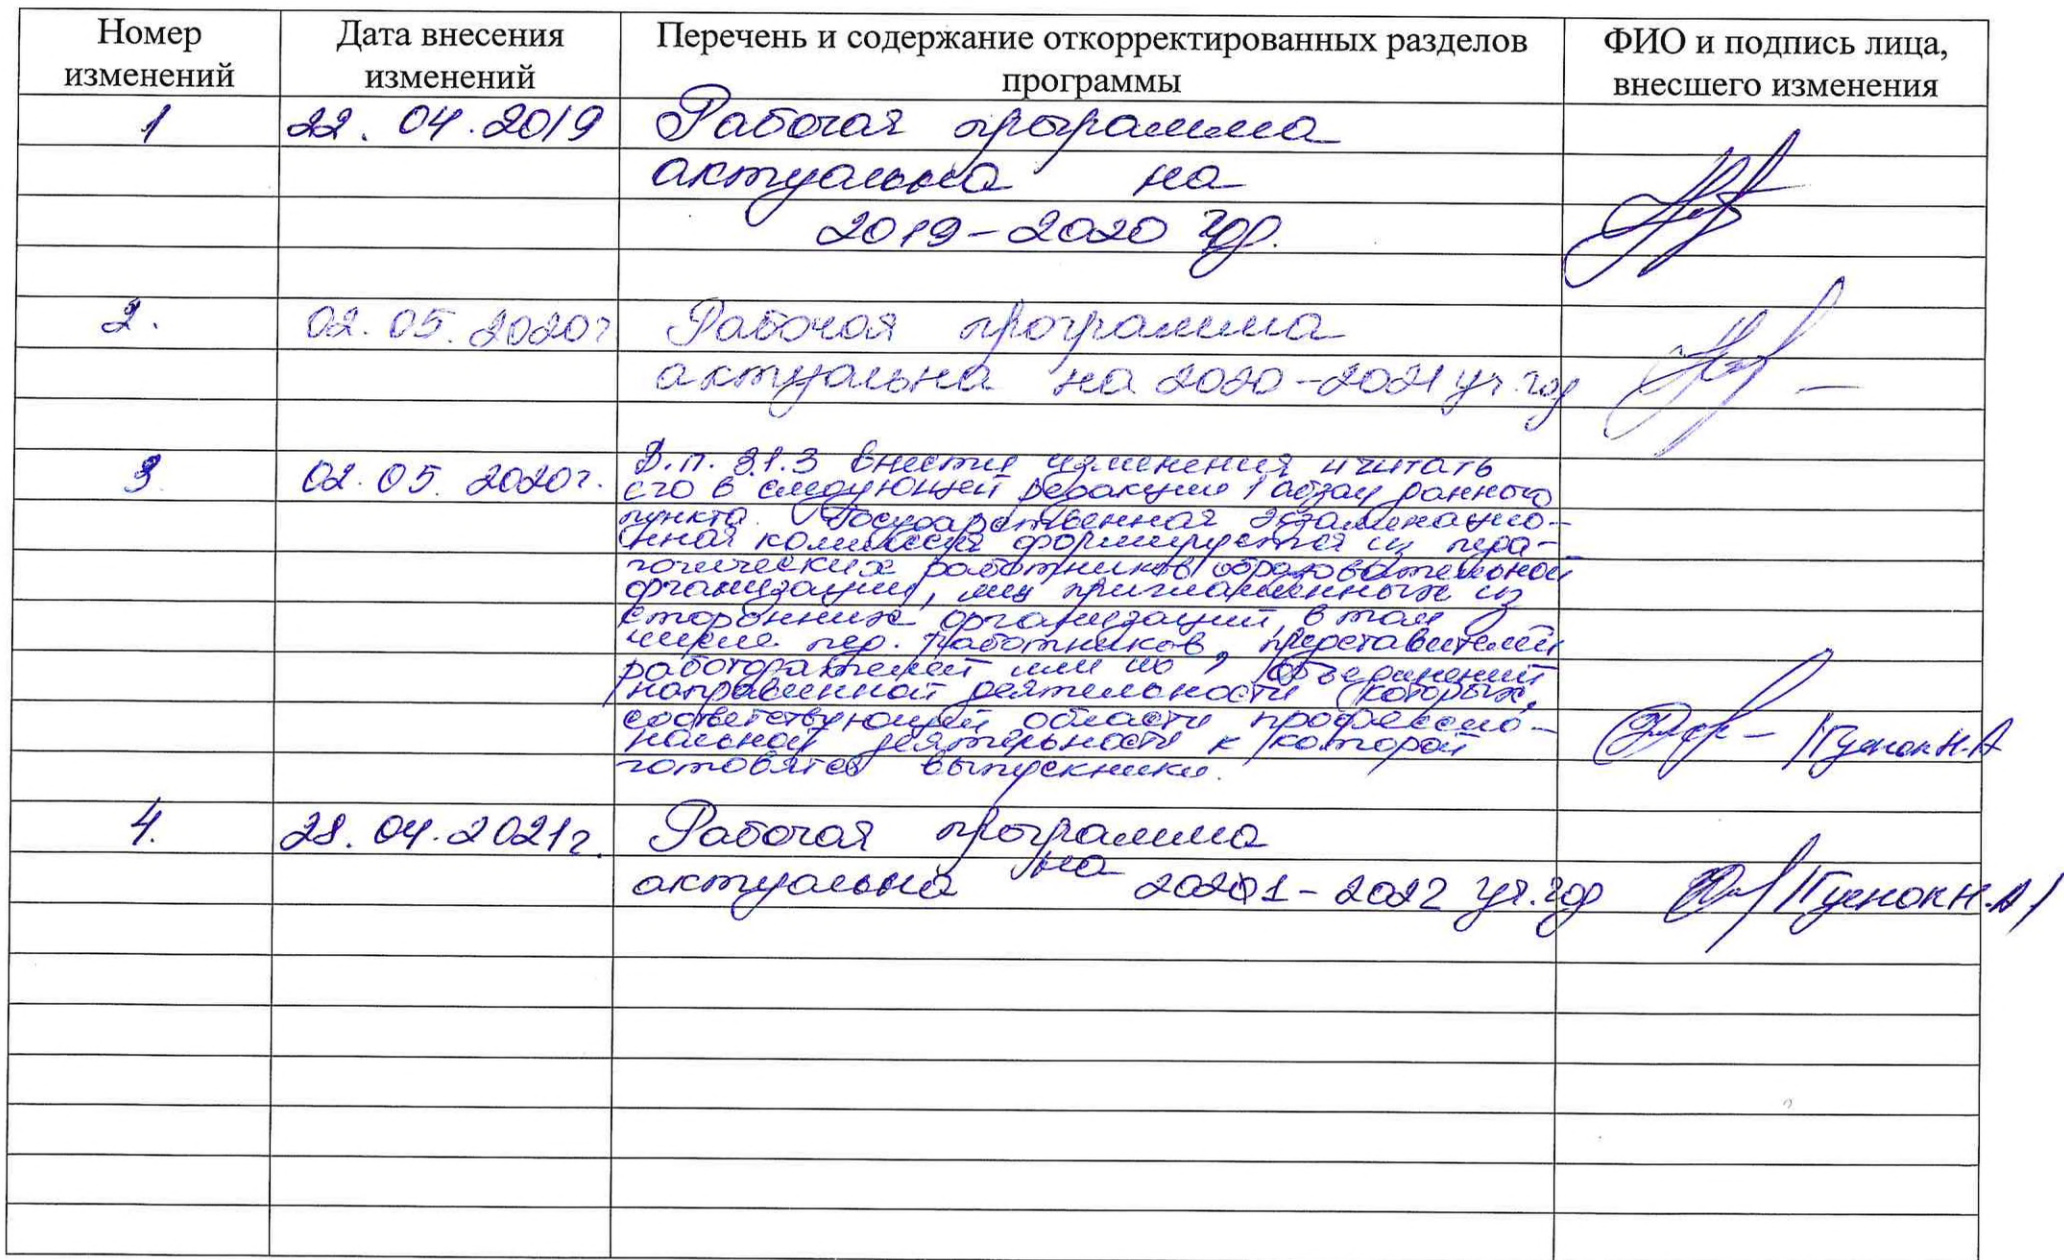 Номер изменений
Дата внесения изменений
Перечень и содержание откорректированных разделов программы
ФИО и подпись лица, внесшего изменения
1 22.04.2019 Рабочая программа
актуальна на
2019-2020 год.
2. 02.05.2020г Рабочая программа
актуальна на 2020-2021 уч.год
3 02.05.2020г. В.п. 3.1.3 внести изменения и читать
его в следующей редакции 1 абзац данного
пункта. Государственная экзаменацио-
нная комиссия формируется из педа-
гогических работников образовательной
организации, лиц приглашенных из
сторонних организаций, в том
числе пед. работников, представителей
работодателей или их, объединений
направленной деятельности которых,
соответствующей области профессио-
нальной деятельности к которой
готовятся выпускники.
/Гуенок Н.А
4. 28.04.2021г. Рабочая программа
актуальна на 2021-2022 уч.год /Гуенок Н.А/